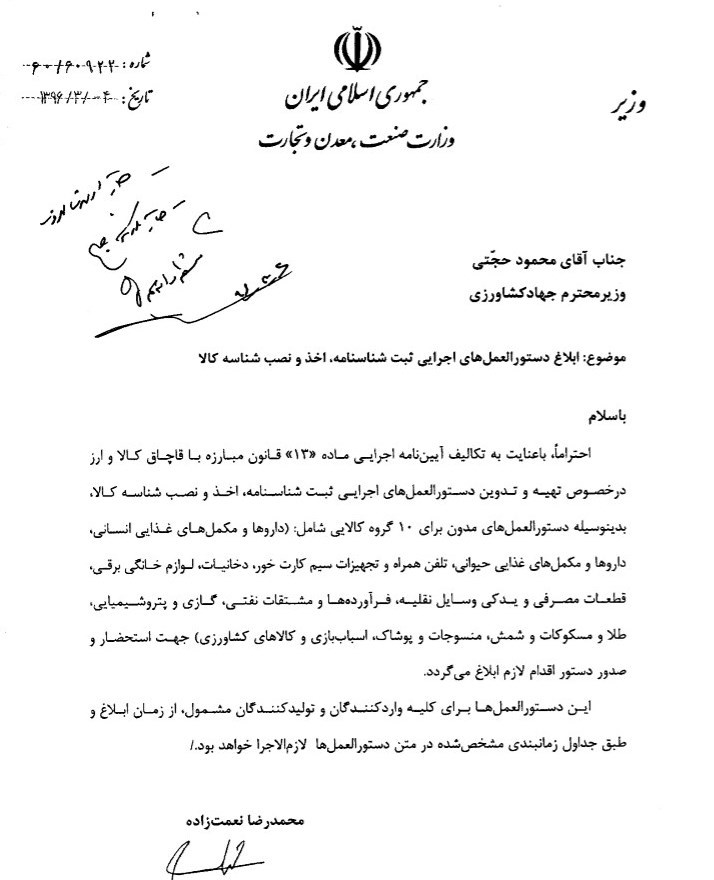 جمهوری اسلامی ایران
وزارت صنعت، معدن و تجارت
وزیر
شماره: ۶۰/۶۰۹۲۲
تاریخ: ۱۳۹۶/۳/۰۴
جناب آقای محمود حجّتی
وزیرمحترم جهادکشاورزی
موضوع: ابلاغ دستورالعمل‌های اجرایی ثبت شناسنامه، اخذ و نصب شناسه کالا
باسلام
احتراماً، باعنایت به تکالیف آیین‌نامه اجرایی ماده «۱۳» قانون مبارزه با قاچاق کالا و ارز
درخصوص تهیه و تدوین دستورالعمل‌های اجرایی ثبت شناسنامه، اخذ و نصب شناسه کالا،
بدینوسیله دستورالعمل‌های مدون برای ۱۰ گروه کالایی شامل: (داروها و مکمل‌های غذایی انسانی،
داروها و مکمل‌های غذایی حیوانی، تلفن همراه و تجهیزات سیم کارت خور، دخانیات، لوازم خانگی برقی،
قطعات مصرفی و یدکی وسایل نقلیه، فرآورده‌ها و مشتقات نفتی، گازی و پتروشیمیایی،
طلا و مسکوکات و شمش، منسوجات و پوشاک، اسباب‌بازی و کالاهای کشاورزی) جهت استحضار و
صدور دستور اقدام لازم ابلاغ می‌گردد.
این دستورالعمل‌ها برای کلیه واردکنندگان و تولیدکنندگان مشمول، از زمان ابلاغ و
طبق جداول زمانبندی مشخص‌شده در متن دستورالعمل‌ها لازم‌الاجرا خواهد بود./
محمدرضا نعمت‌زاده